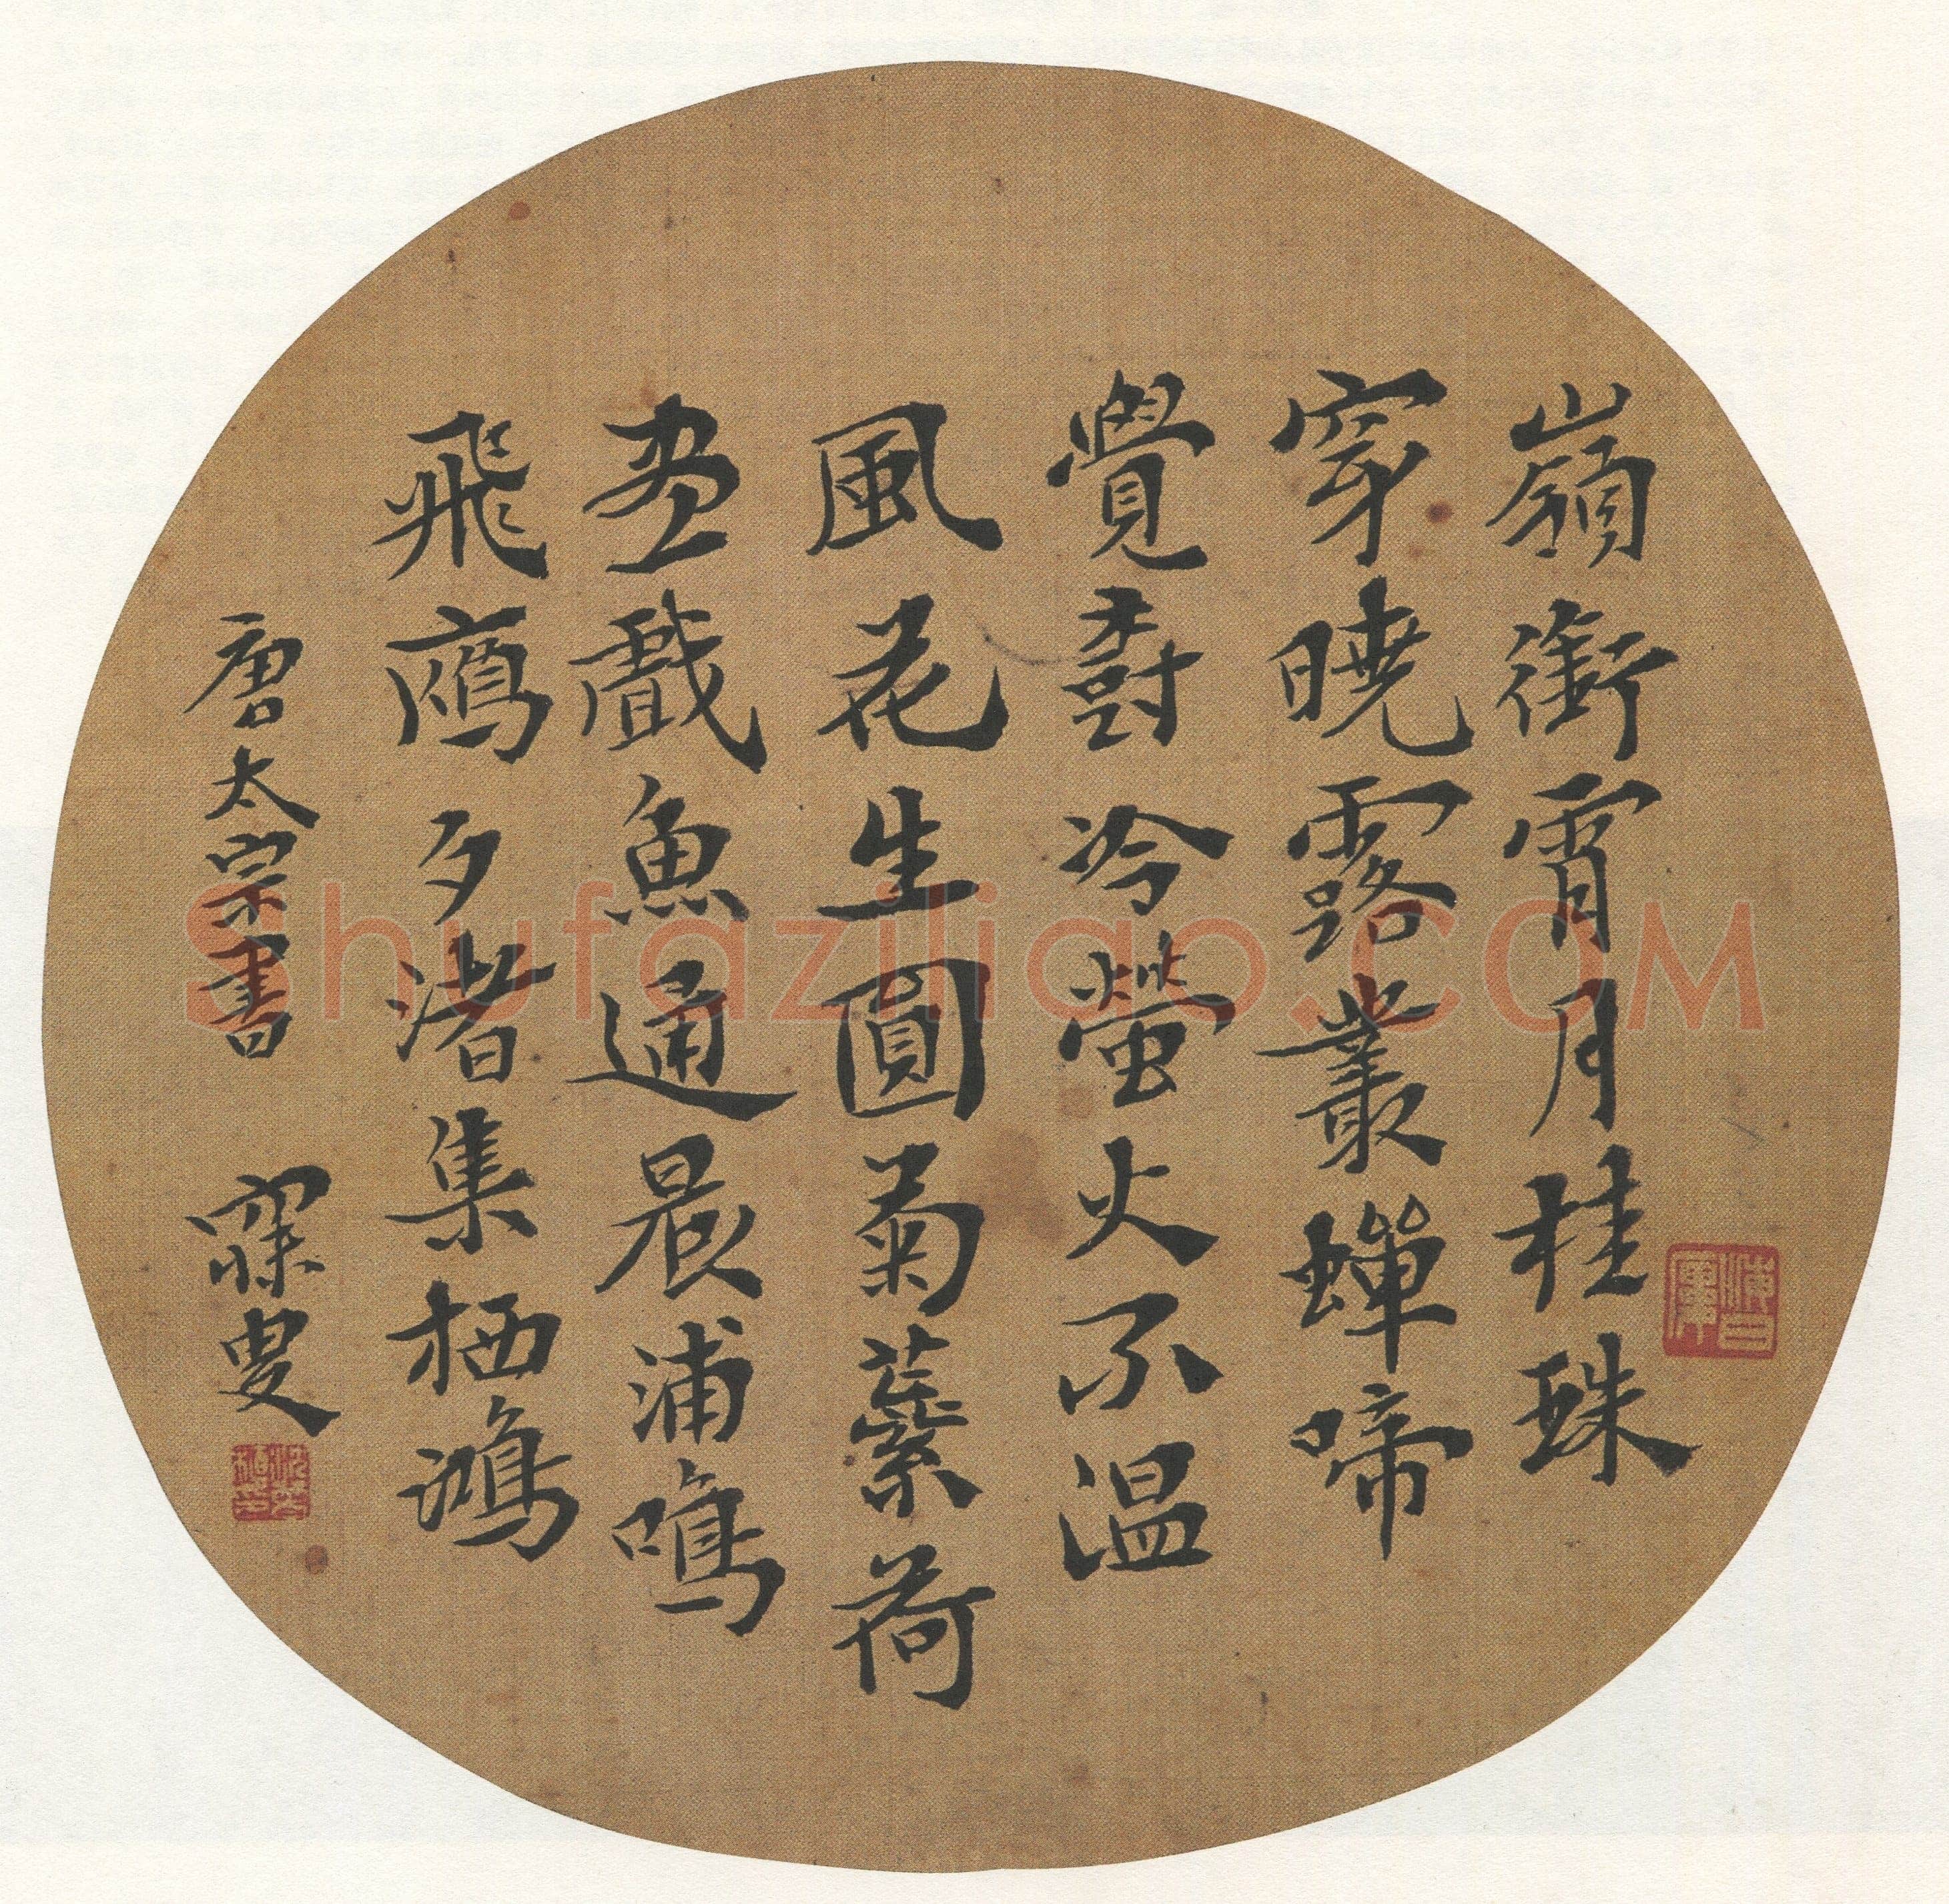 嶺銜宵月桂珠
穿曉露叢蟬啼
覺樹冷螢火不溫
風花生圓菊蘂荷
盡戲魚通晨浦鳴
飛鴈夕渚集栖鴻
唐太宗書 寐叟
Shufaziliao.COM